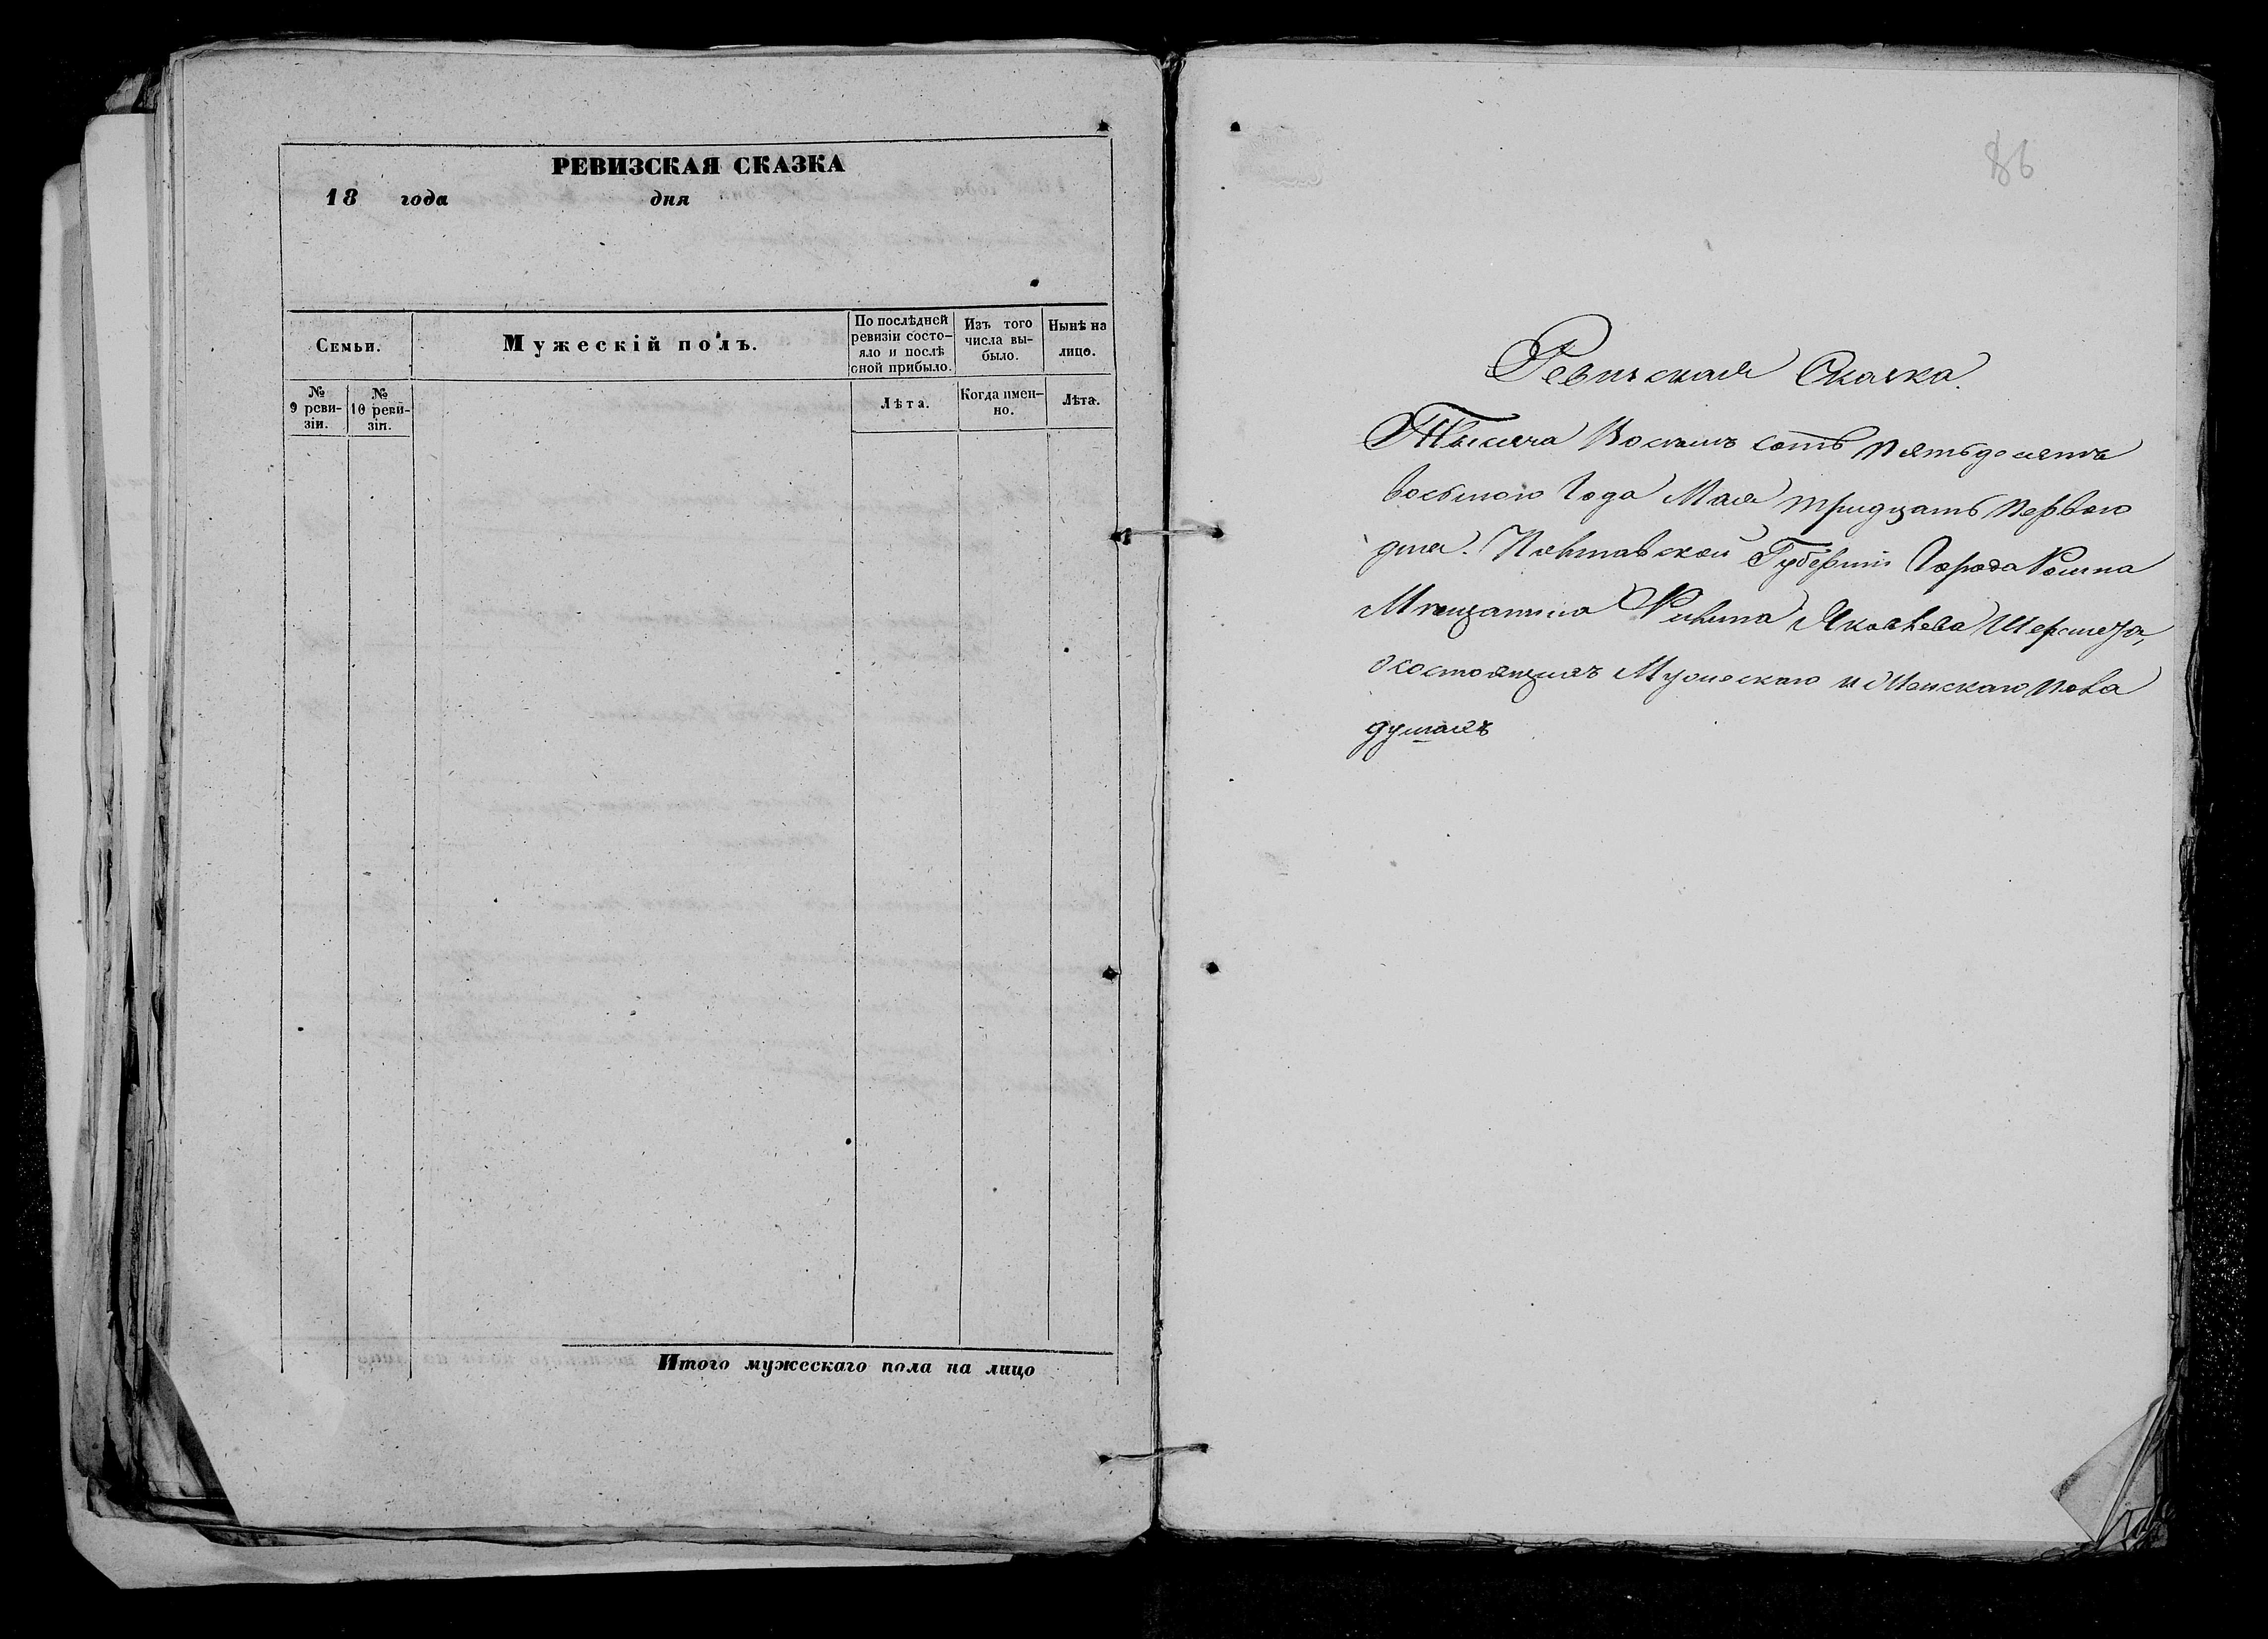 РЕВИЗСКАЯ СКАЗКА
18 года дня
Семьи.
№ 9 реви-зіи.
№ 10 реви-зіи.
Мужескій полъ.
По послѣдней ревизіи состо-яло и послѣ оной прибыло.
Лѣта.
Изъ того числа вы-было.
Когда имен-но.
Нынѣ на лицо.
Лѣта.
Итого мужескаго пола на лицо
86
Ревизская Сказка.
Тысяча Восемь сотъ пятьдесятъ
восьмого Года Мая тридцать первого
дня. Полтавской Губерніи Города Ромна
Мѣщанина Якавлева
осостоящихъ Мужескаго и Женскаго пола
душахъ